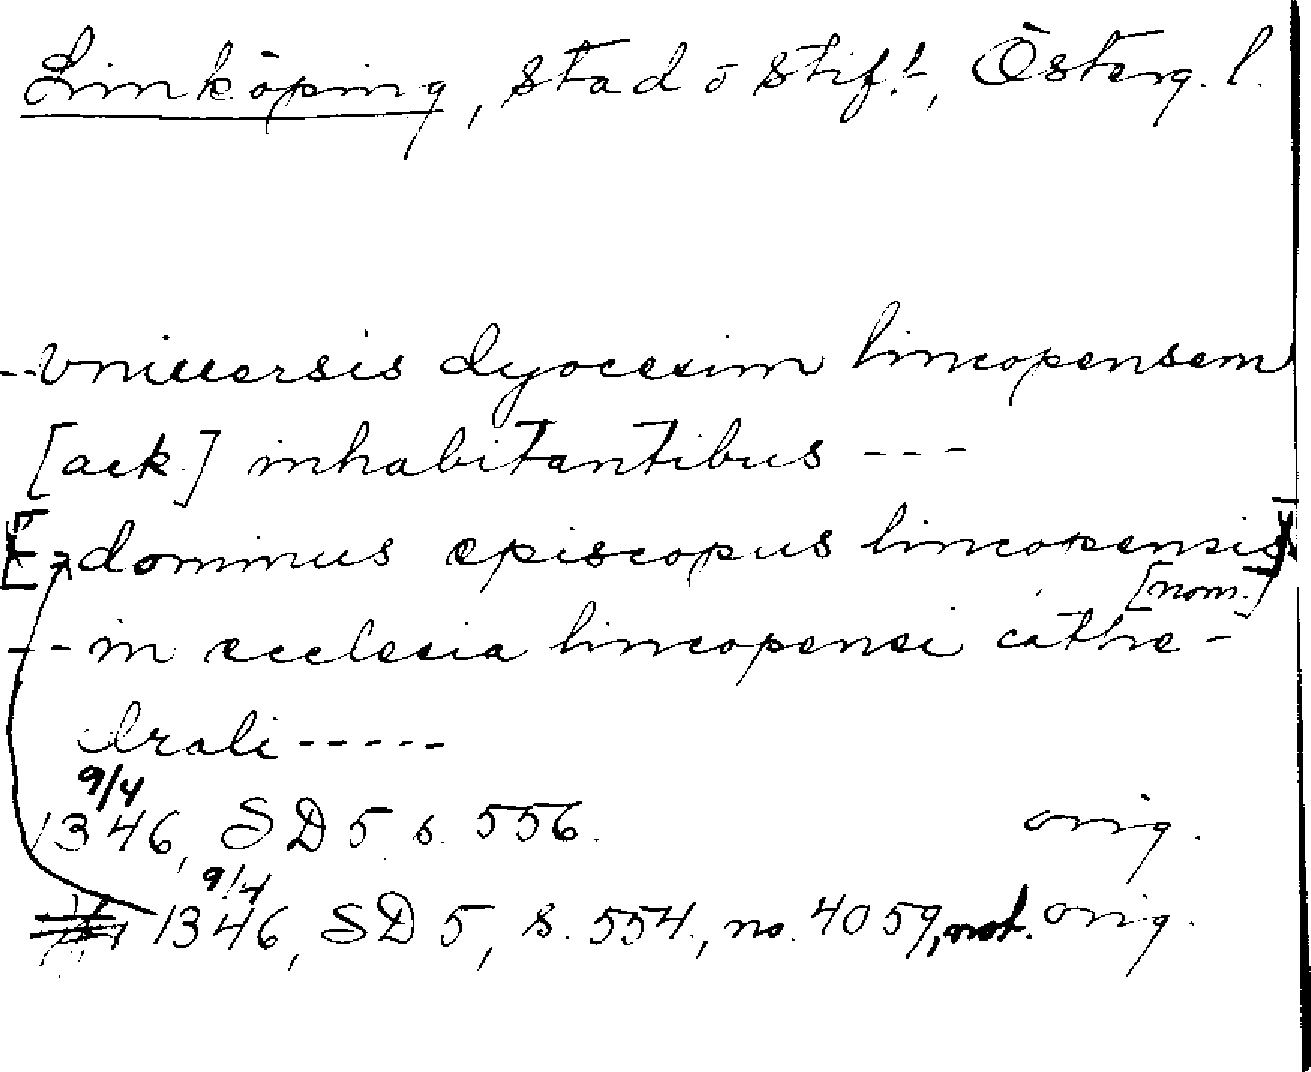 Linköping, stad o stift, Österg. l.
--vniuersis dyocesim lincopensem
[ack.] inhabitantibus ---
[-- dominus episcopus lincopensis]
[nom.]
-- in ecclesia lincopensi cathe-
drali -----
9/4
1346, SD 5 s. 556. orig.
9/4
1346, SD 5, s. 554, no. 4059, not. orig.